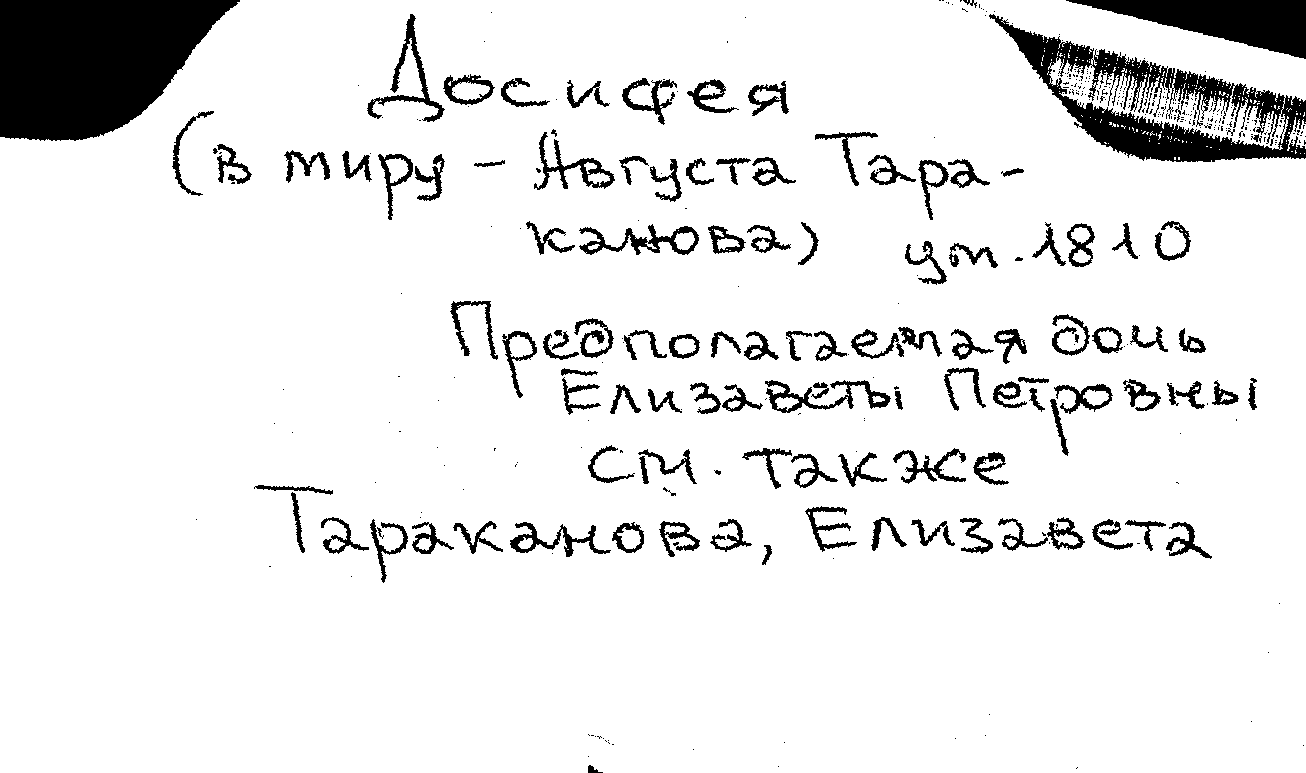 Досифея
(в миру - Августа Тара-
канова) ум. 1810
Предполагаемая дочь
Елизаветы Петровны
см. также
Тараканова, Елизавета